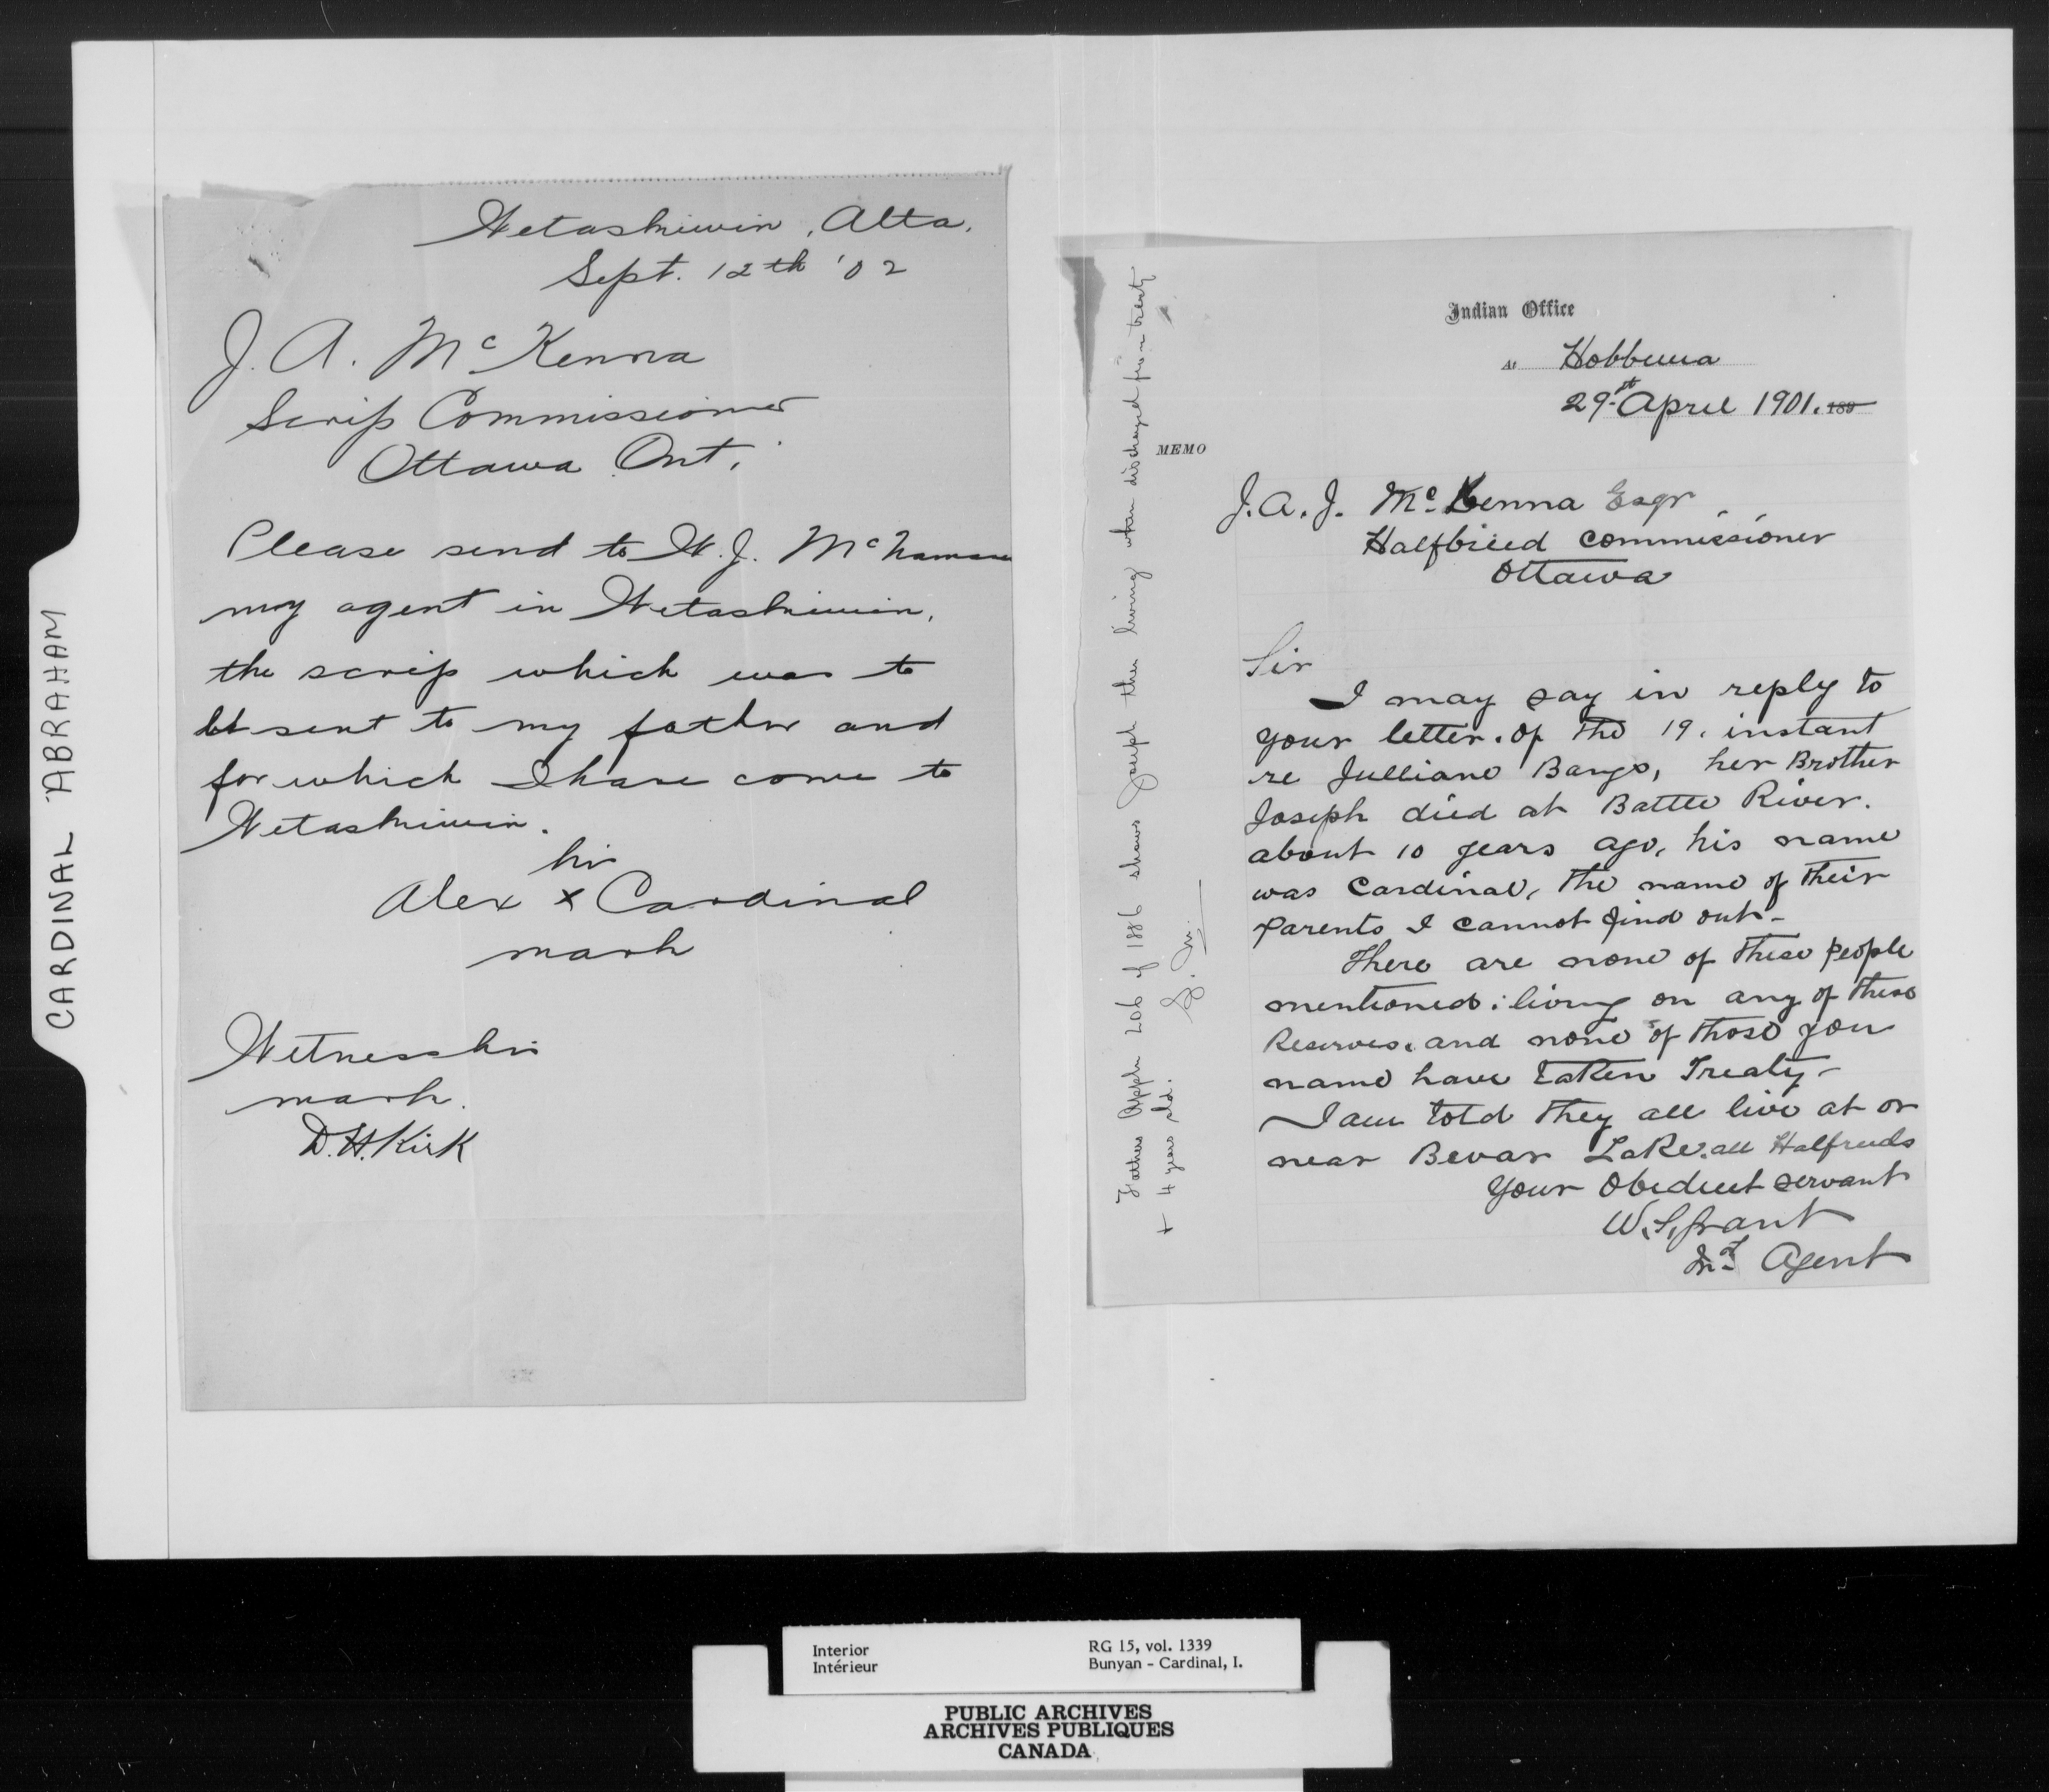 CARDINAL ABRAHAM
Wetaskiwin, Alta.
Sept. 12th '02
J. A. McKenna
Scrip Commissioner
Ottawa Ont.
Please send to W. J. McNamara
my agent in Wetaskiwin,
the scrip which was to
be sent to my father and
for which I have come to
Wetaskiwin.
his
Alex x Cardinal
mark
Witness his
mark.
D. H. Kirk
Indian Office
At Hobbema
29th April 1901. 189
MEMO
J. A. J. McKenna Esqr
Halfbreed Commissioner
Ottawa
Sir
I may say in reply to
your letter. of the 19. instant
re Julliane Bangs, her Brother
Joseph died at Battle River.
about 10 years ago, his name
was Cardinal, the name of their
Parents I cannot find out-
There are none of these people
mentioned: living on any of these
Reserves. and none of those you
name have taken Treaty-
I am told they all live at or
near Bevar Lake. all Halfreeds
Your Obedient servant
W. S. Grant
Ind Agent
Fathers Appln 206 of 1886 shows Joseph then living when discharged from treaty
+ 4 years old.
Interior
Intérieur
RG 15, vol. 1339
Bunyan - Cardinal, I.
PUBLIC ARCHIVES
ARCHIVES PUBLIQUES
CANADA